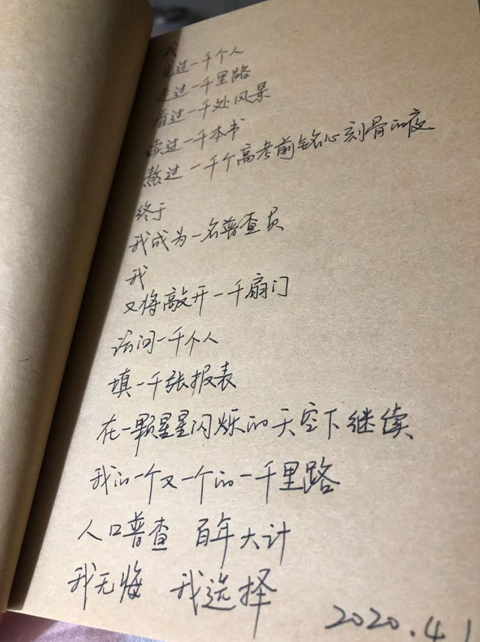 我
见过一千个人
走过一千里路
看过一千处风景
读过一千本书
熬过一千个高考前铭心刻骨的夜
终于
我成为一名普查员
我
又将敲开一千扇门
访问一千个人
填一千张报表
在一颗星星闪烁的天空下继续
我的一个又一个的一千里路
人口普查 百年大计
我无悔 我选择
2020.4.1